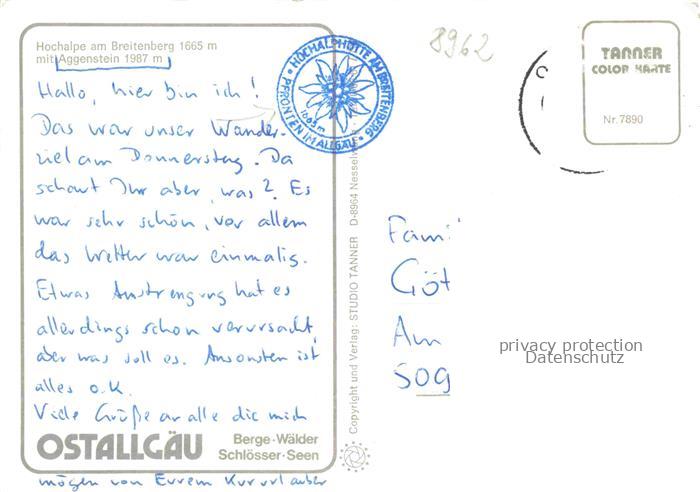 Hochalpe am Breitenberg 1665 m
mit Aggenstein 1987 m
Hallo, hier bin ich!
Das war unser Wander-
ziel am Donnerstag. Da
schaut Ihr aber, was? Es
war sehr schön, vor allem
das Wetter war einmalig.
Etwas Anstrengung hat es
allerdings schon verursacht,
aber was soll es. Ansonsten ist
alles o.K.
Viele Grüße an alle die mich
OSTALLGÄU
Berge·Wälder
Schlösser·Seen
mögen von Eurem Kururlauber
HOCHALPHÜTTE AM BREITENBERG
1665m
PFRONTEN IM ALLGÄU
8962
Copyright und Verlag: STUDIO TANNER D-8964 Nesselw
TANNER
COLOR KARTE
Nr. 7890
Fami
Göt
Am
509
privacy protection
Datenschutz